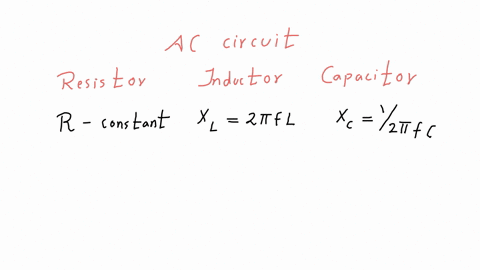 AC circuit
Resistor Inductor Capacitor
R - constant X_L = 2πfL X_C = 1/2πfC